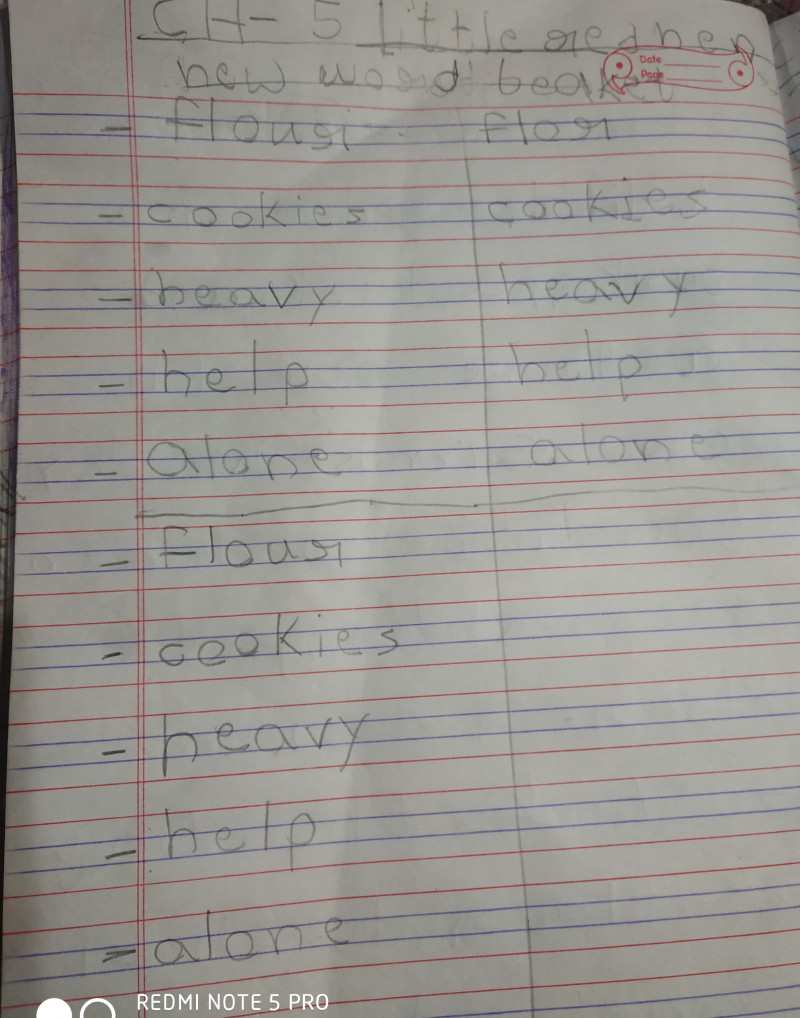 CH- 5 Little red hen
new word basket
Date
Page
- flour flor
- cookies cookies
- heavy heavy
- help help
- alone alone
- flour
- ceokies
- heavy
- help
- alone
REDMI NOTE 5 PRO